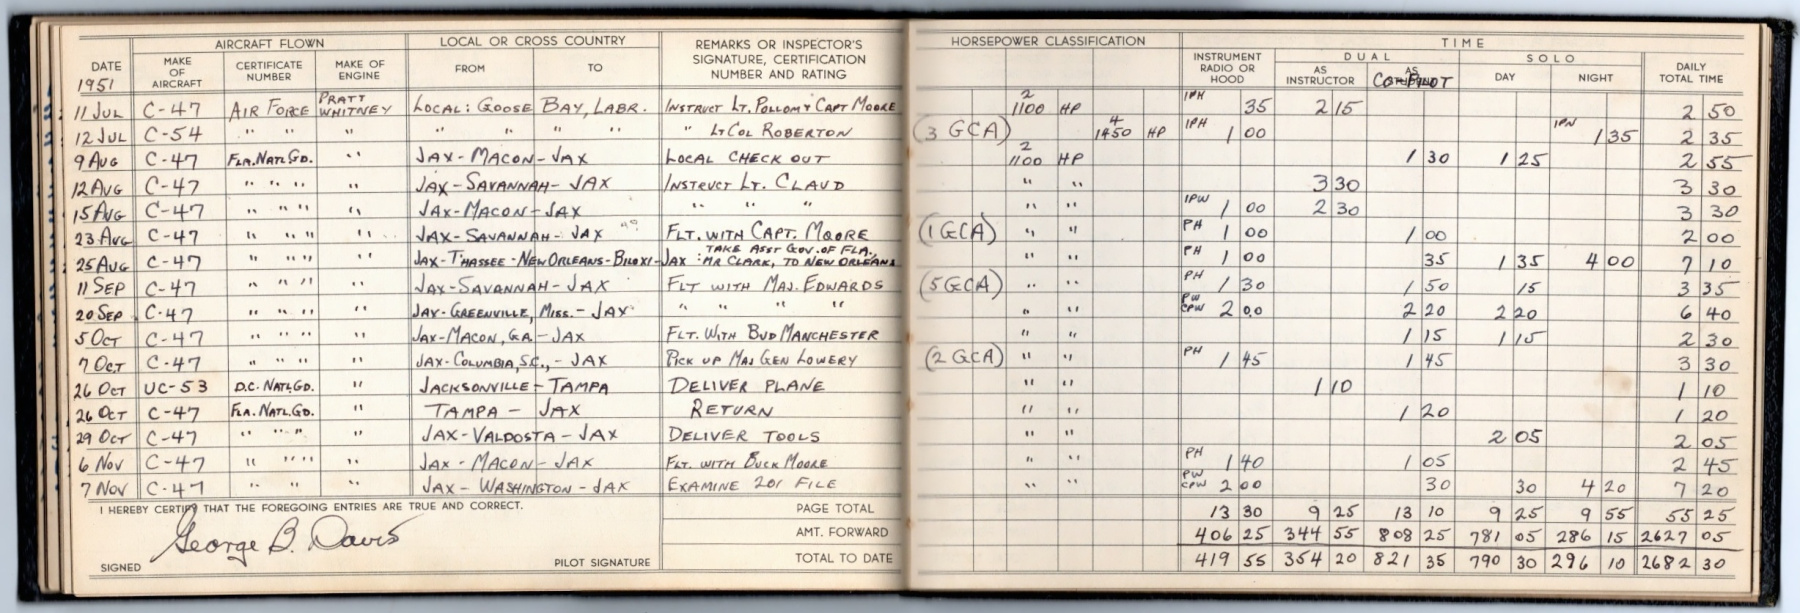 AIRCRAFT FLOWN LOCAL OR CROSS COUNTRY REMARKS OR INSPECTOR'S SIGNATURE, CERTIFICATION NUMBER AND RATING HORSEPOWER CLASSIFICATION TIME
DATE MAKE OF AIRCRAFT CERTIFICATE NUMBER MAKE OF ENGINE FROM TO INSTRUMENT RADIO OR HOOD DUAL SOLO DAILY TOTAL TIME
1951 AS INSTRUCTOR AS CO-PILOT DAY NIGHT
11 JUL C-47 AIR FORCE PRATT WHITNEY LOCAL: GOOSE BAY, LABR. INSTRUCT LT. POLLOM & CAPT MOORE 2 1100 HP IPH 35 2 15 2 50
12 JUL C-54 " " " " " " " " LT COL ROBERTON (3 GCA) 4 1450 HP IPH 1 00 IPN 1 35 2 35
9 AUG C-47 FLA. NATL GD. " JAX-MACON-JAX LOCAL CHECK OUT 2 1100 HP 1 30 1 25 2 55
12 AUG C-47 " " " " JAX-SAVANNAH-JAX INSTRUCT LT. CLAUD " " 3 30 3 30
15 AUG C-47 " " " " JAX-MACON-JAX " " " " " IPW 1 00 2 30 3 30
23 AUG C-47 " " " " JAX-SAVANNAH-JAX FLT. WITH CAPT. MOORE (1 GCA) " " PH 1 00 1 00 2 00
25 AUG C-47 " " " " JAX-T'HASSEE-NEW ORLEANS-BILOXI-JAX : TAKE ASST GOV. OF FLA., MR CLARK, TO NEW ORLEANS " " PH 1 00 35 1 35 4 00 7 10
11 SEP C-47 " " " " JAX-SAVANNAH-JAX FLT WITH MAJ. EDWARDS (5 GCA) " " PH 1 30 1 50 15 3 35
20 SEP C-47 " " " " JAX-GREENVILLE, MISS.-JAX " " " " " " PW CPW 2 00 2 20 2 20 6 40
5 OCT C-47 " " " " JAX-MACON, GA.-JAX FLT. WITH BUD MANCHESTER " " 1 15 1 15 2 30
7 OCT C-47 " " " " JAX-COLUMBIA, S.C.,-JAX PICK UP MAJ GEN LOWERY (2 GCA) " " PH 1 45 1 45 3 30
26 OCT UC-53 D.C. NATL GD. " JACKSONVILLE-TAMPA DELIVER PLANE " " 1 10 1 10
26 OCT C-47 FLA. NATL. GD. " TAMPA - JAX RETURN " " 1 20 1 20
29 OCT C-47 " " " " JAX-VALDOSTA-JAX DELIVER TOOLS " " 2 05 2 05
6 NOV C-47 " " " " JAX-MACON-JAX FLT. WITH BUCK MOORE " " PH 1 40 1 05 2 45
7 NOV C-47 " " " JAX-WASHINGTON-JAX EXAMINE 201 FILE " " PW CPW 2 00 30 30 4 20 7 20
I HEREBY CERTIFY THAT THE FOREGOING ENTRIES ARE TRUE AND CORRECT. PAGE TOTAL 13 30 9 25 13 10 9 25 9 55 55 25
George B. Davis AMT. FORWARD 406 25 344 55 808 25 781 05 286 15 2627 05
SIGNED PILOT SIGNATURE TOTAL TO DATE 419 55 354 20 821 35 790 30 296 10 2682 30